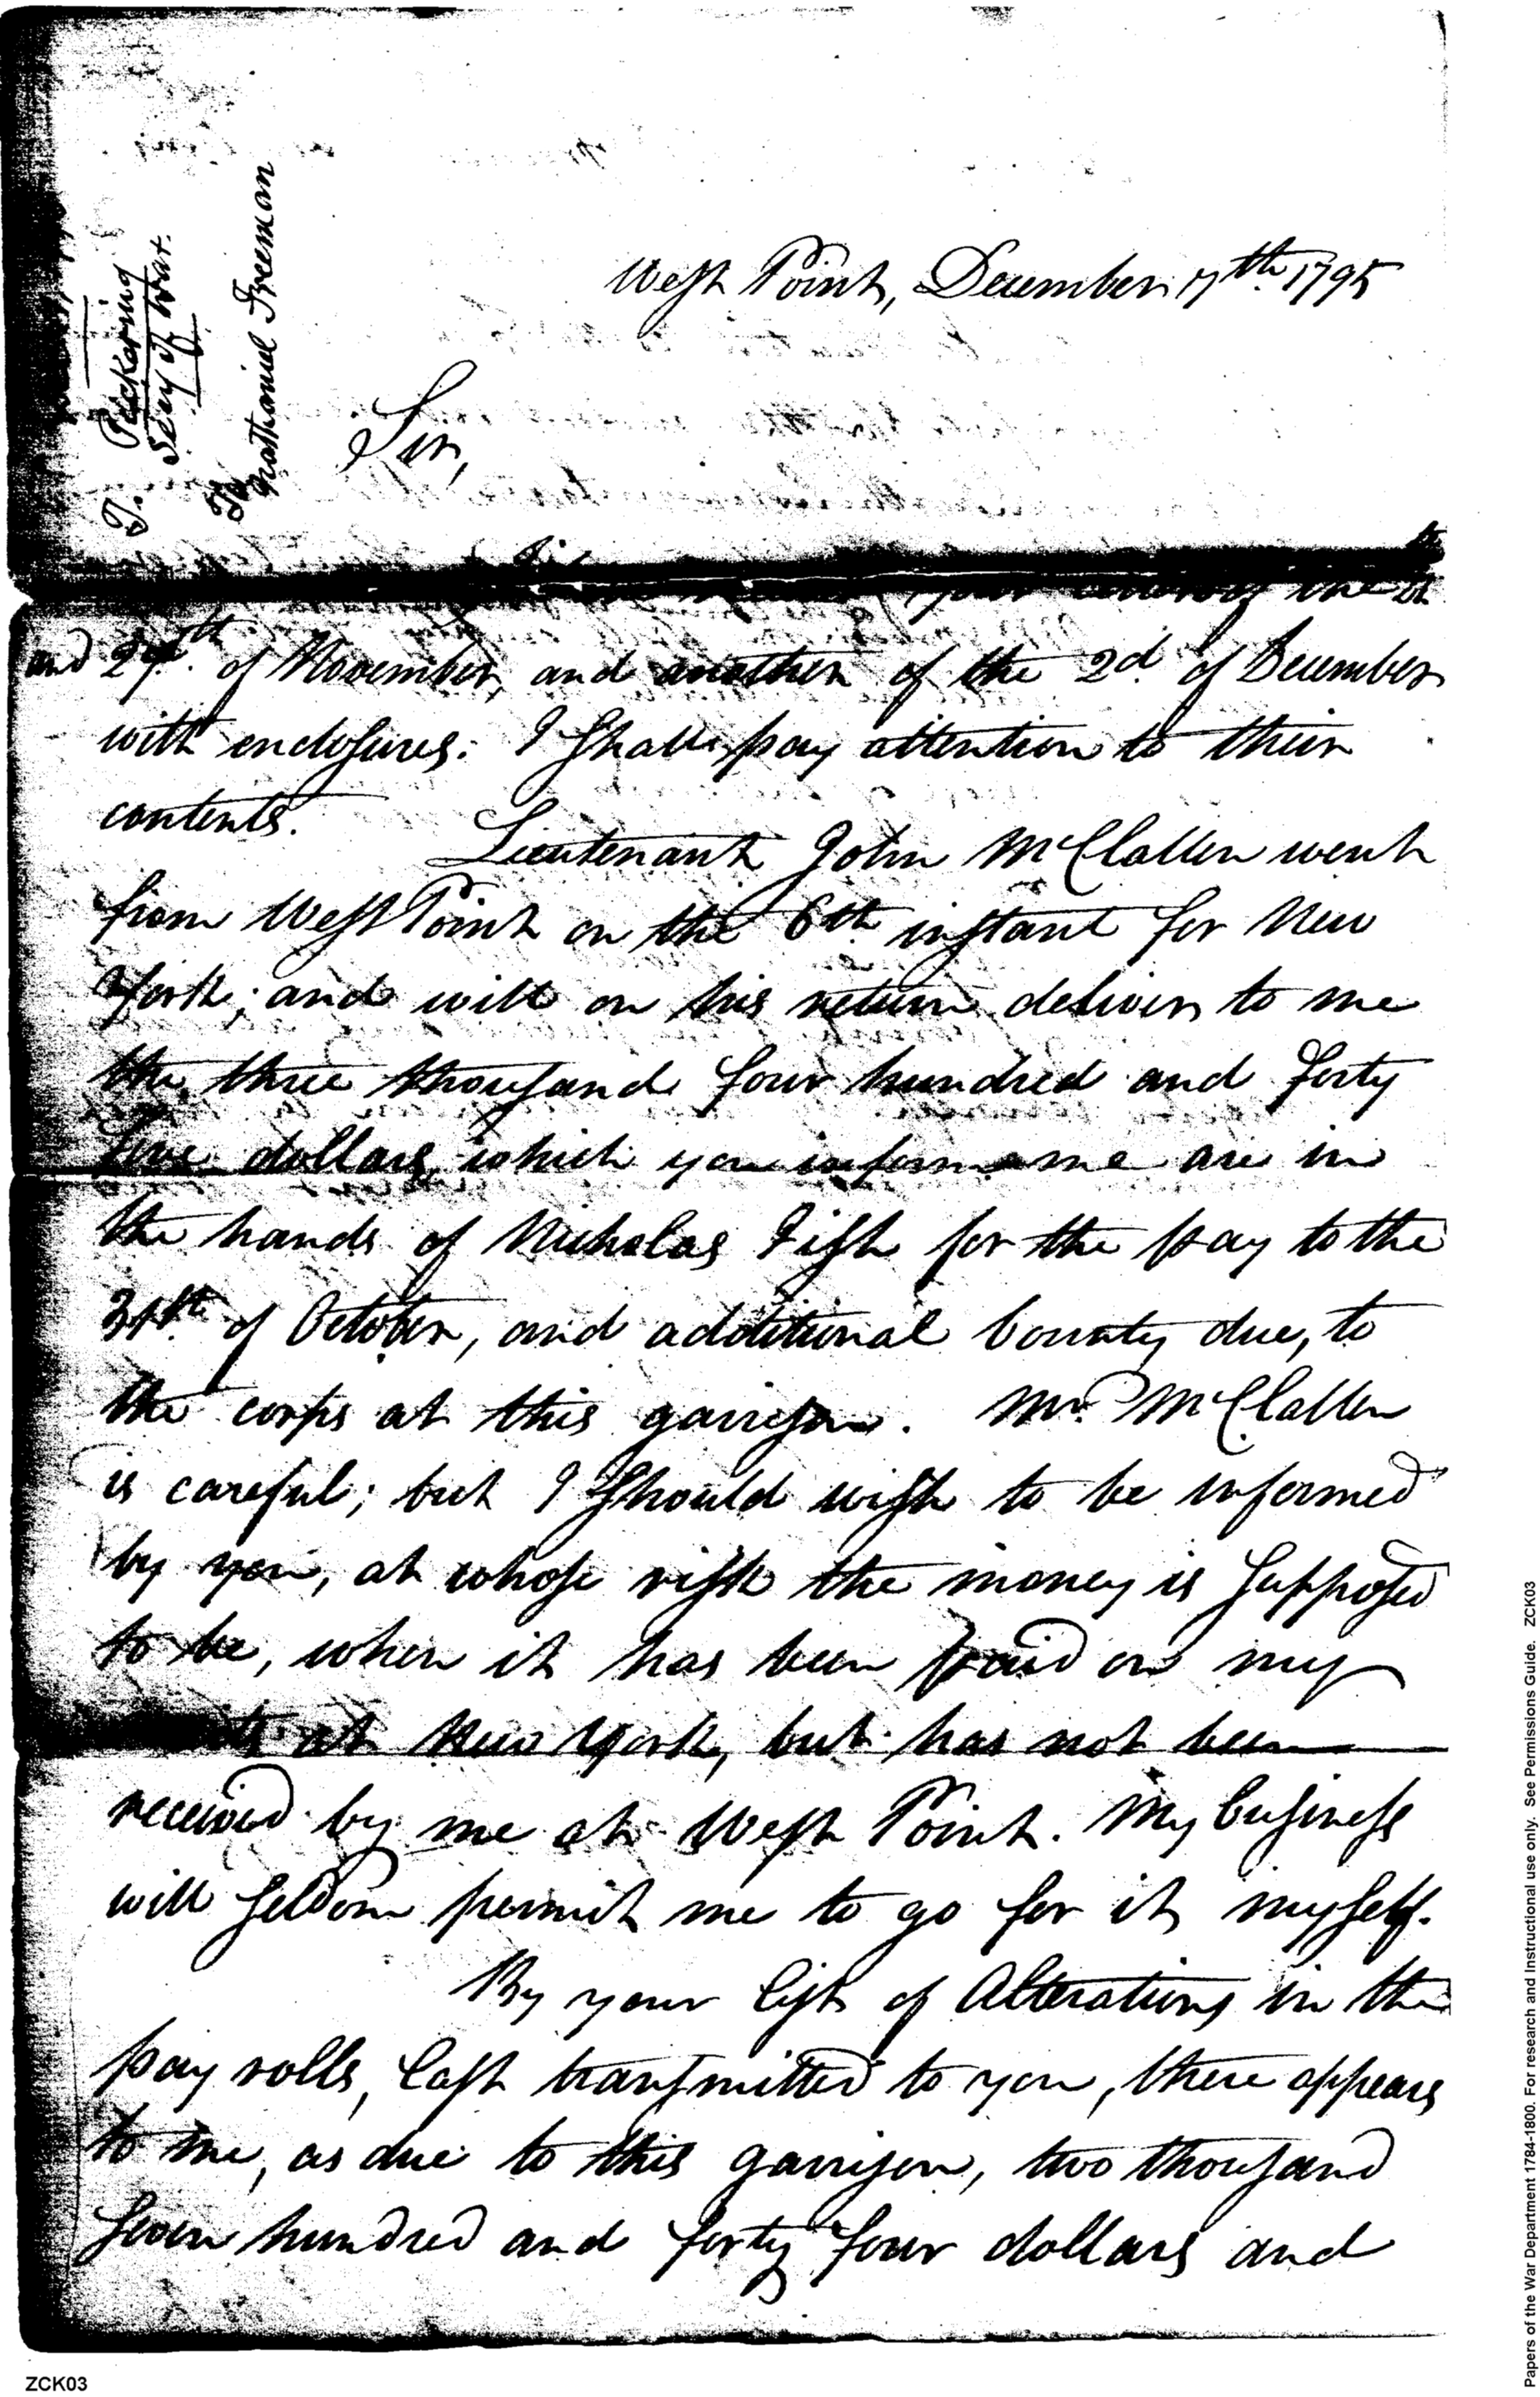 T. Pickering
Secy of War.
To
Nathaniel Freeman
West Point, December 17th. 1795
Sir,
your
and 27th. of November, and another of the 2d of December
with enclosures: I shall pay attention to their
contents.
Lieutenant John McClallen went
from West Point on the 6th instant for New
York; and will on his return deliver to me
the three thousand four hundred and forty
five dollars, which you inform me are in
the hands of Nicholas Fish for the pay to the
31st. of October, and additional bounty due, to
the corps at this garrison. Mr. McClallen
is careful; but I should wish to be informed
by you, at whose risk the money is supposed
to be, when it has been paid on my
at New York, but has not been
received by me at West Point. My business
will seldom permit me to go for it myself.
By your list of Alterations in the
pay rolls, last transmitted to you, there appears
to me, as due to this garrison, two thousand
seven hundred and forty four dollars and
ZCK03
Papers of the War Department 1784-1800. For research and Instructional use only. See Permissions Guide. ZCK03